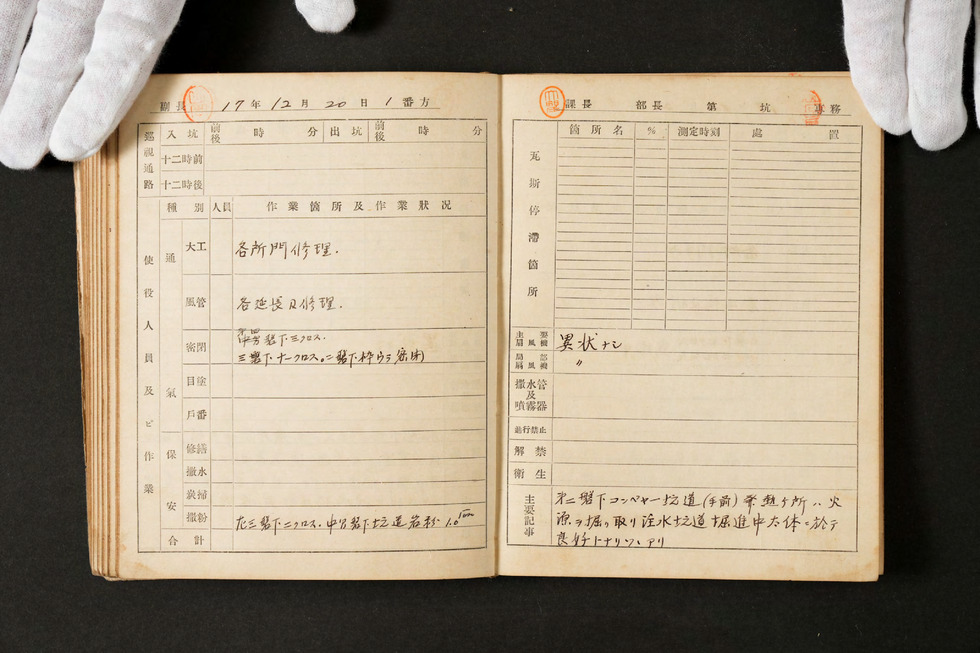 副長 17年12月20日1番方
巡視通路
入坑 前後 時 分 出坑 前後 時 分
十二時前
十二時後
使役人員及ビ作業
種別 人員 作業箇所及作業狀況
通氣
大工 各所門修理.
風管 各延長及修理.
密閉
盤下三クロス.
三盤下ナークロス。二盤下枠ウラ密閉
目塗
戶番
保安
修繕
撒水
炭掃
撒粉 左三盤下ニクロス.中卸盤下坑道岩粉 1.0
合計
課長 部長 第 坑 事務
瓦斯停滯箇所
箇所名 % 測定時刻 處置
主要扇風機 異狀ナシ
局部扇風機 〃
撒水管及噴霧器
進行禁止
解禁
衛生
主要記事
第二盤下コンベヤー坑道(手前)発熱ヶ所ハ火
源ヲ掘り取リ注水坑道掘進中大体ニ於テ
良好トナリツヽアリ